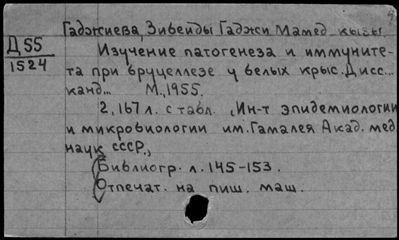 Гаджиева, Зивейды Гаджи Мамед кызы.
Д 55
1524
Изучение патогенеза и иммуните-
та при бруцеллезе у белых крыс. Дисс...
канд... М., 1955.
2, 167 л. с табл. (Ин-т эпидемиологии
и микробиологии им. Гамалея Акад. мед.
наук СССР.)
Библиогр. л. 145-153.
Отпечат. на пиш. маш.